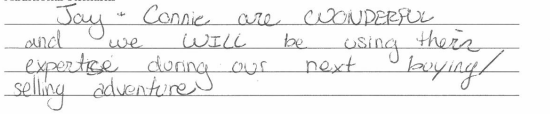 Jay + Connie are WONDERFUL
and we WILL be using their
expertise during our next buying/
selling adventure